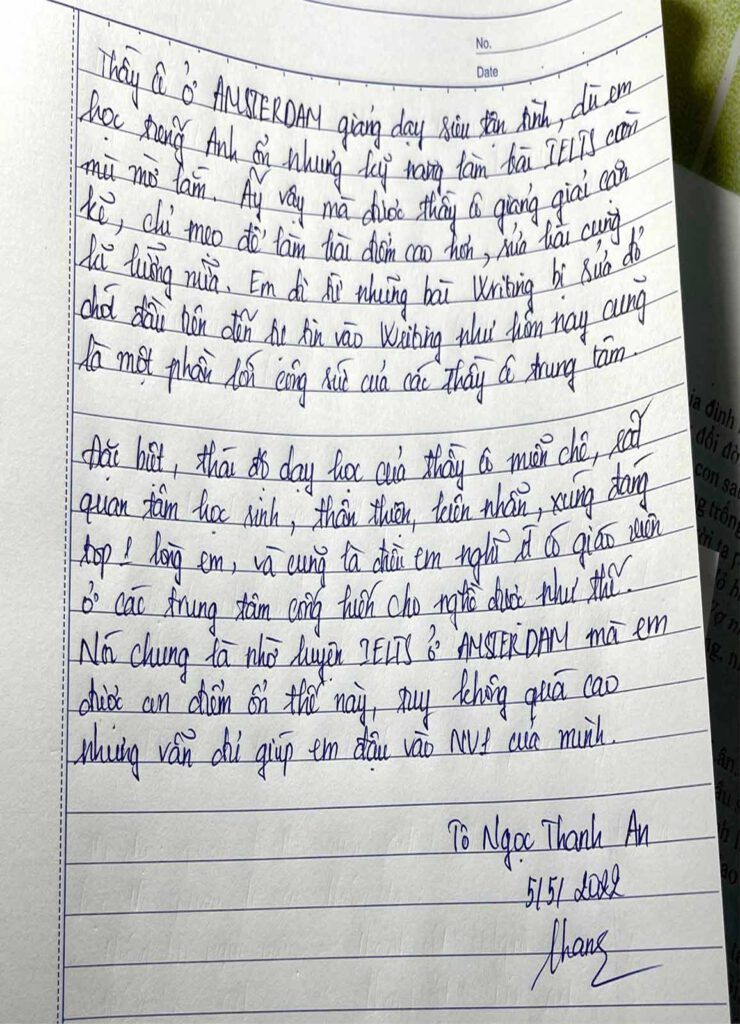 No.
Date
Thầy cô ở AMSTERDAM giảng dạy siêu tận tình, dù em
học tiếng Anh ổn nhưng kỹ năng làm bài IELTS còn
mù mờ lắm. Ấy vậy mà được thầy cô giảng giải cặn
kẽ, chỉ mẹo để làm bài điểm cao hơn, sửa bài cũng
kĩ lưỡng nữa. Em đi từ những bài Writing bị sửa đỏ
chót đầu tiên đến tự tin vào Writing như hôm nay cũng
là một phần lớn công sức của các thầy cô trung tâm.
Đặc biệt, thái độ dạy học của thầy cô miễn chê, rất
quan tâm học sinh, thân thiện, kiên nhẫn, xứng đáng
top 1 lòng em, và cũng là điều em nghĩ ít có giáo viên
ở các trung tâm cống hiến cho nghề được như thế.
Nói chung là nhờ luyện IELTS ở AMSTERDAM mà em
được ăn điểm ổn thế này, tuy không quá cao
nhưng vẫn đủ giúp em đậu vào NV1 của mình.
Tô Ngọc Thanh An
5/5/2022